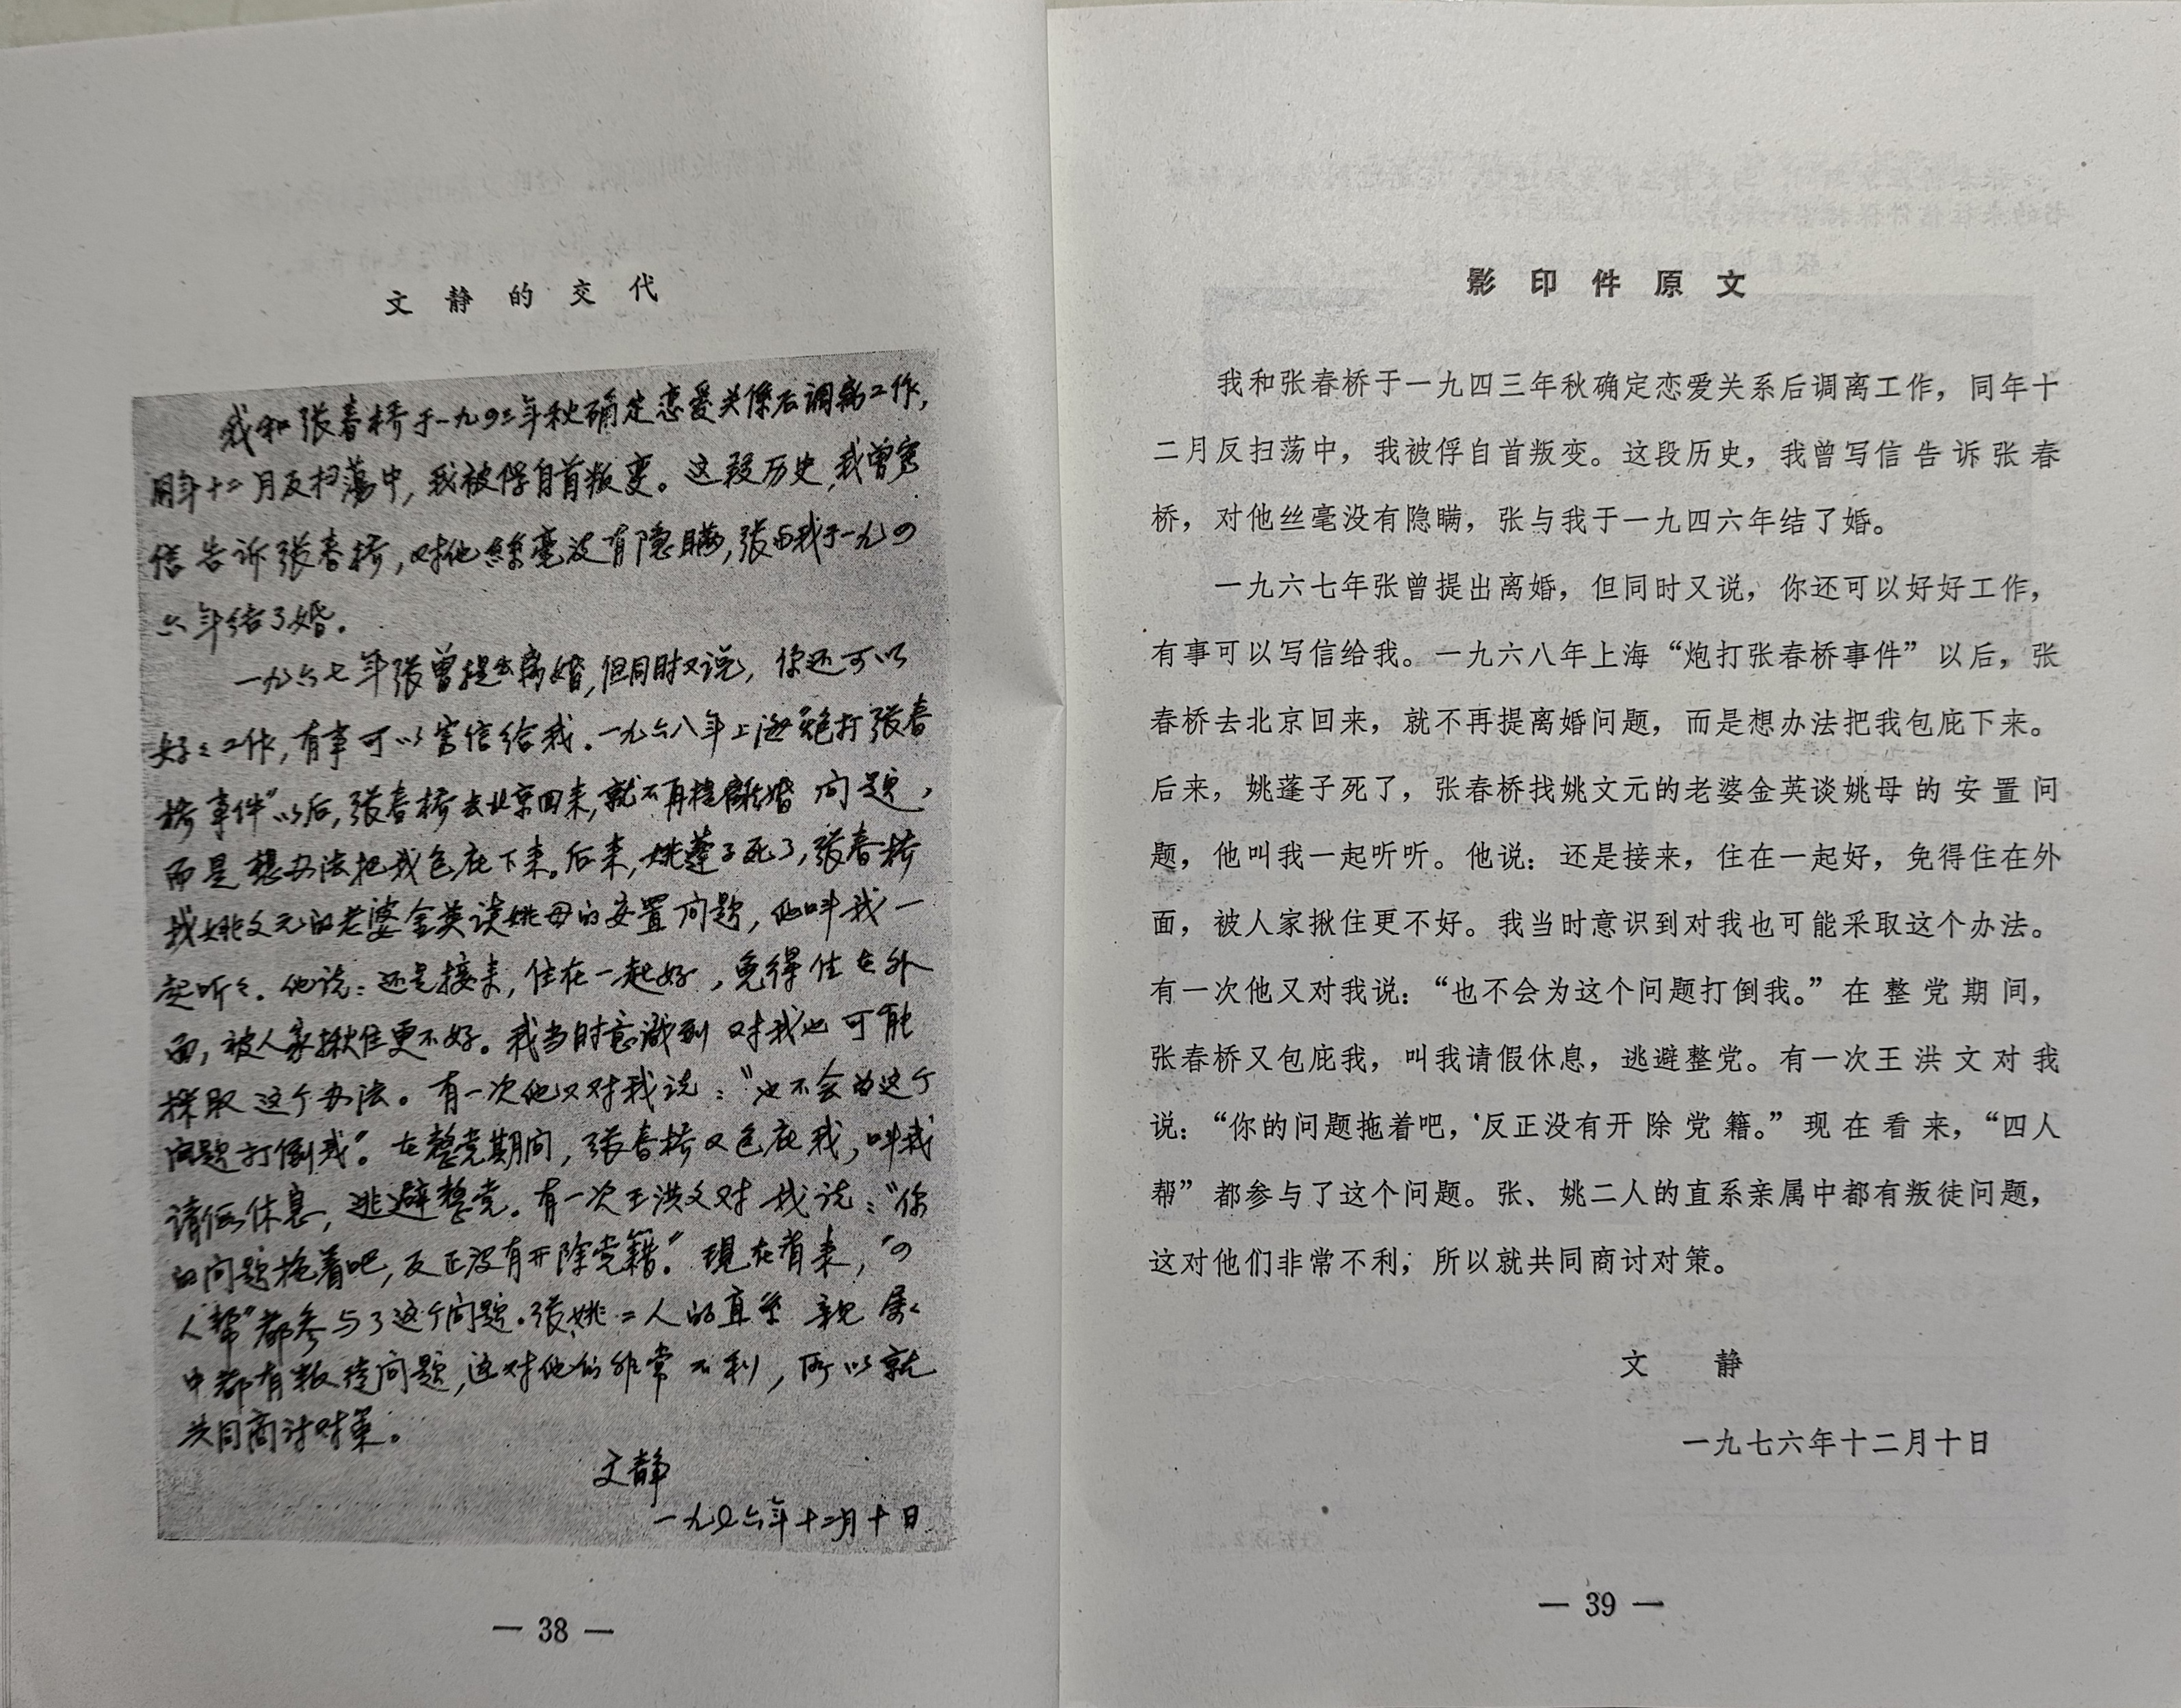 文静的交代
我和张春桥于一九四三年秋确定恋爱关係后调离工作,
同年十二月反扫荡中,我被俘自首叛变。这段历史,我曾写
信告诉张春桥,对他絲毫没有隐瞒,张与我于一九四
六年结了婚.
一九六七年张曾提出离婚,但同时又说,你还可以
好〻工作,有事可以写信给我.一九六八年上海“炮打张春
桥事件”以后,张春桥去北京回来,就不再提离婚问题,
而是想办法把我包庇下来。后来,姚蓬子死了,张春桥
找姚文元的老婆金英谈姚母的安置问题,他叫我一
起听〻.他说:还是接来,住在一起好,免得住在外
面,被人家揪住更不好。我当时意识到对我也可能
採取这个办法。有一次他又对我说:“也不会为这个
问题打倒我”。在整党期间,张春桥又包庇我,叫我
请假休息,逃避整党。有一次王洪文对我说:“你
的问题拖着吧,反正没有开除党籍.”現在看来,“四
人帮”都参与了这个问题.张、姚二人的直系親属
中都有叛徒问题,这对他们非常不利,所以就
共同商讨对策。
文静
一九七六年十二月十日
— 38 —
影印件原文
我和张春桥于一九四三年秋确定恋爱关系后调离工作,同年十
二月反扫荡中,我被俘自首叛变。这段历史,我曾写信告诉张春
桥,对他丝毫没有隐瞒,张与我于一九四六年结了婚。
一九六七年张曾提出离婚,但同时又说,你还可以好好工作,
有事可以写信给我。一九六八年上海“炮打张春桥事件”以后,张
春桥去北京回来,就不再提离婚问题,而是想办法把我包庇下来。
后来,姚蓬子死了,张春桥找姚文元的老婆金英谈姚母的安置问
题,他叫我一起听听。他说:还是接来,住在一起好,免得住在外
面,被人家揪住更不好。我当时意识到对我也可能采取这个办法。
有一次他又对我说:“也不会为这个问题打倒我。”在整党期间,
张春桥又包庇我,叫我请假休息,逃避整党。有一次王洪文对我
说:“你的问题拖着吧,反正没有开除党籍。”现在看来,“四人
帮”都参与了这个问题。张、姚二人的直系亲属中都有叛徒问题,
这对他们非常不利;所以就共同商讨对策。
文静
一九七六年十二月十日
— 39 —